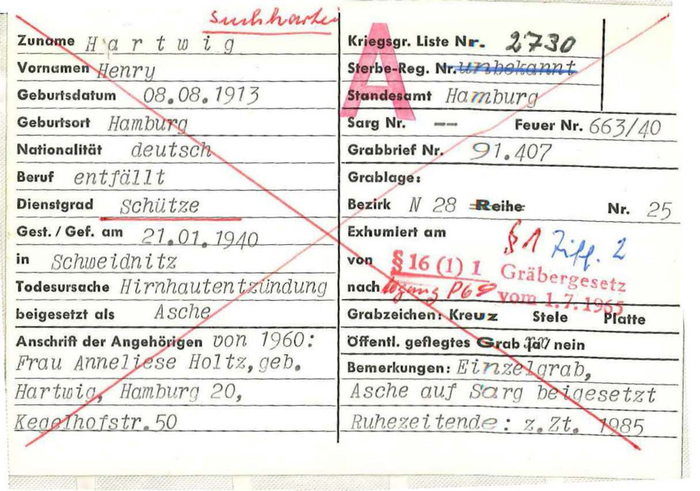 Suchkartei
Zuname H a r t w i g
Vornamen Henry
Geburtsdatum 08.08.1913
Geburtsort Hamburg
Nationalität deutsch
Beruf entfällt
Dienstgrad Schütze
Gest. / Gef. am 21.01.1940
in Schweidnitz
Todesursache Hirnhautentzündung
beigesetzt als Asche
Anschrift der Angehörigen von 1960:
Frau Anneliese Holtz, geb.
Hartwig, Hamburg 20,
Kegelhofstr. 50
A
Kriegsgr. Liste Nr. 2730
Sterbe-Reg. Nr. unbekannt
Standesamt Hamburg
Sarg Nr. -- Feuer Nr. 663/40
Grabbrief Nr. 91.407
Grablage:
Bezirk N 28 Reihe Nr. 25
Exhumiert am
§ 1 Ziff. 2
von
§ 16 (1) 1 Gräbergesetz
nach
vom 1.7.1965
Grabzeichen: Kreuz Stele Platte
Öffentl. gepflegtes Grab ja/ nein
Bemerkungen: Einzelgrab,
Asche auf Sarg beigesetzt
Ruhezeitende: z.Zt. 1985